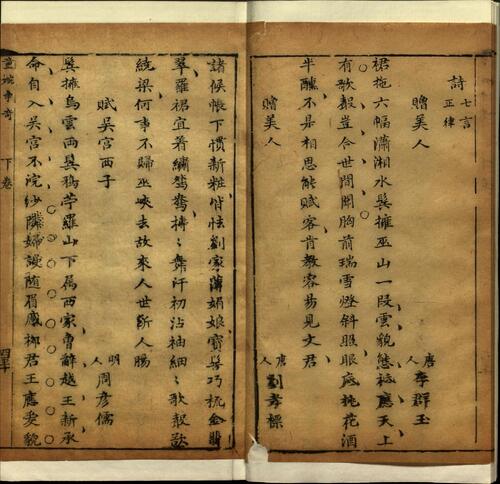 詩 七言正律
贈美人
唐人 李群玉
裙拖六幅瀟湘水鬓擁巫山一段雲貌態祗應天上
有歌聲豈合世間聞胸前瑞雪燈斜照眼底桃花酒
半醺不是相思能賦客肯教容易見文君
贈美人
唐人 劉孝標
諸侯帳下慣新粧皆怯劉家薄媚娘寶髻巧梳金翡
翠羅裙宜着繡鴛鴦摶〻舞汗初沾袖細〻歌聲欲
繞梁何事不歸巫峽去故來人世斷人腸
賦吳宮西子
明人 周彦儒
鬓擁烏雲兩鬓鴉苧羅山下屬西家曾辭越王新承
命自入吳宮不浣紗隣婦謾随眉處柳君王應愛貌
下卷